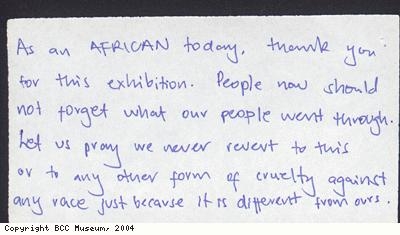 As an AFRICAN today, thank you
for this exhibition. People now should
not forget what our people went through.
Let us pray we never revert to this
or to any other form of cruelty against
any race just because it is different from ours.
Copyright BCC Museum, 2004